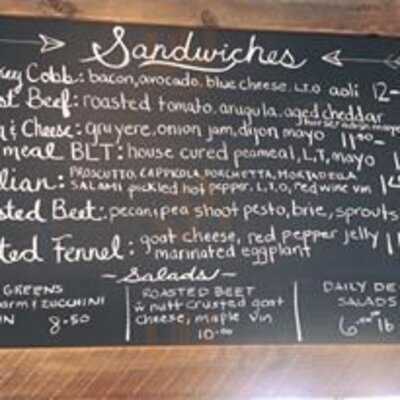 Sandwiches
key Cobb: bacon, avocado. blue cheese. L.T.O aoli 12-
st Beef: roasted tomato. arugula. aged cheddar
horseradish mayo
& Cheese: gruyere. onion jam, dijon mayo 11.50-
meal BLT: house cured peameal, L,T, mayo
lian: PROSCUTTO, CAPPICOLA, PORCHETTA, MORTADELLA
SALAMI pickled hot pepper. L,T,O, red wine vin
sted Beet: pecan, pea shoot pesto, brie, sprouts
ted Fennel: goat cheese, red pepper jelly
marinated eggplant
-Salads-
GREENS
arm & ZUCCHINI
IN 8.50
ROASTED BEET
w nutt crusted goat
cheese, maple vin
10.00
DAILY DE
SALADS
lb